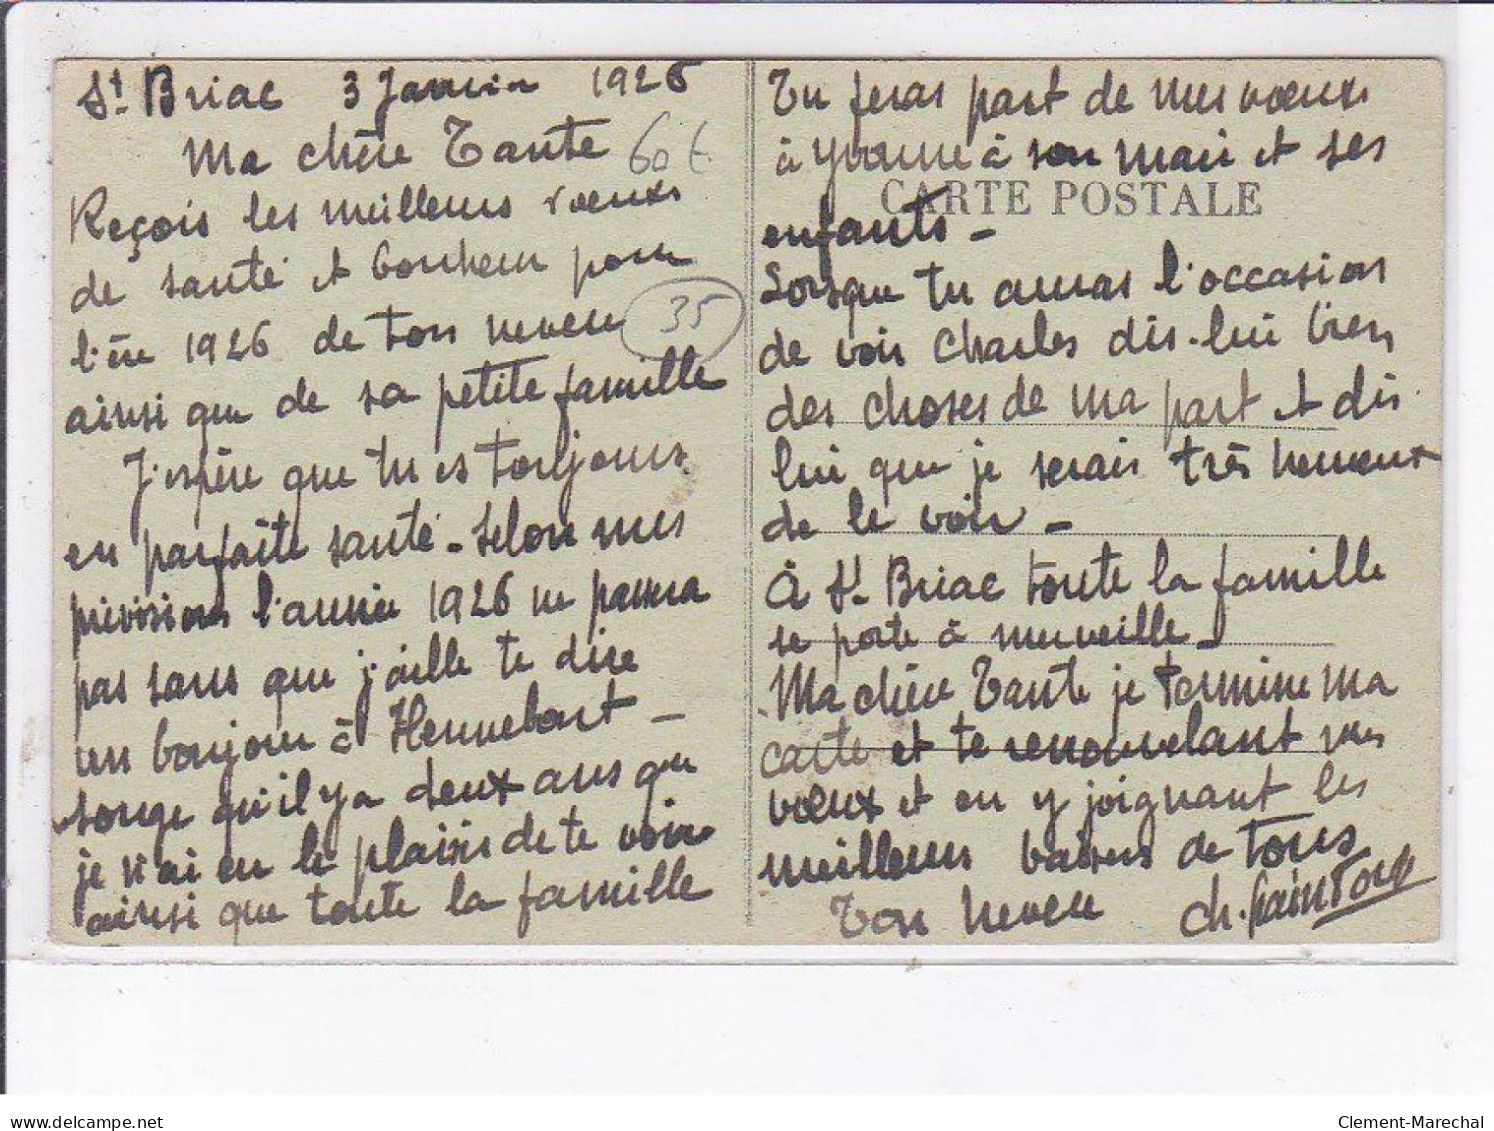 St Briac 3 Janvier 1926
Ma chère Tante
60 €
Reçois les meilleurs vœux
de santé et bonheur pour
l'ère 1926 de ton neveu
35
ainsi que de sa petite famille
J'espère que tu es toujours
en parfaite santé - Selon mes
prévisions l'année 1926 ne passera
pas sans que j'aille te dire
un bonjour à Hennebont -
songe qu'il y a deux ans que
je n'ai eu le plaisir de te voir
ainsi que toute la famille
Tu feras part de mes vœux
à Yvonne à son mari et ses
CARTE POSTALE
enfants -
Lorsque tu auras l'occasion
de voir Charles dis-lui bien
des choses de ma part et dis
lui que je serais très heureux
de le voir -
À St Briac toute la famille
se porte à merveille -
Ma chère Tante je termine ma
carte et te renouvelant mes
vœux et en y joignant les
meilleurs baisers de tous
Ton neveu Ch.
delcampe.net
Clement-Marechal